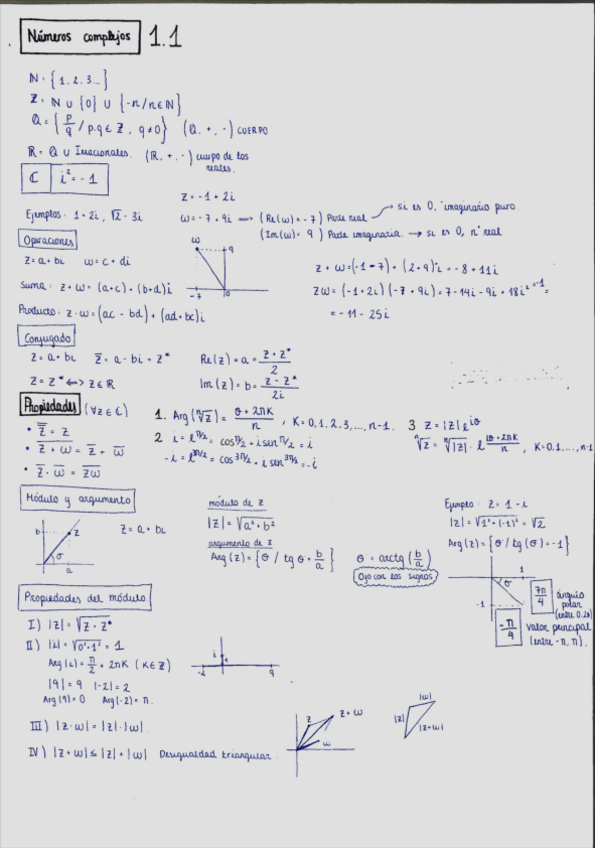 Números complejos 1.1
N = {1, 2, 3...}
Z = N ∪ {0} ∪ {-n / n ∈ N}
Q = {p/q / p, q ∈ Z, q ≠ 0} (Q, +, ·) CUERPO
R = Q ∪ Irracionales. (R, +, ·) cuerpo de los reales.
C i² = -1
z = -1 + 2i
Ejemplos: 1 + 2i, √2 - 3i
ω = -7 + 9i ⇒ (Re(ω) = -7) Parte real → si es 0, imaginario puro
(Im(ω) = 9) Parte imaginaria. → si es 0, nº real
Operaciones
z = a + bi ω = c + di
Suma: z + ω = (a+c) + (b+d)i
Producto: z · ω = (ac - bd) + (ad + bc)i
ω 9 -7 0
z + ω = (-1 - 7) + (2 + 9)i = -8 + 11i
zω = (-1 + 2i)(-7 + 9i) = 7 - 14i - 9i + 18i² =
-1
= -11 - 25i
Conjugado
z = a + bi z̄ = a - bi = z*
Re(z) = a = (z + z*)/2
z = z* ⟺ z ∈ R
Im(z) = b = (z - z*)/2i
Propiedades (∀z ∈ C)
• z̿ = z
• z̅ ̅+̅ ̅ω̅ = z̄ + ω̄
• z̄ · ω̄ = z̅ω̅
1. Arg(ⁿ√z) = (θ + 2πK)/n, K = 0, 1, 2, 3, ..., n-1.
2 i = e^(π/2 i) = cos π/2 + i sen π/2 = i
-i = e^(3π/2 i) = cos 3π/2 + i sen 3π/2 = -i
3 z = |z| e^(iθ)
ⁿ√z = ⁿ√|z| · e^(i(θ + 2πK)/n), K = 0, 1, ..., n-1
Módulo y argumento
b z θ a
z = a + bi
módulo de z
|z| = √(a² + b²)
argumento de z
Arg(z) = {θ / tg θ = b/a} θ = arctg(b/a)
Ojo con los signos
Ejemplo: z = 1 - i
|z| = √(1² + (-1)²) = √2
Arg(z) = {θ / tg(θ) = -1}
1 θ -1
7π/4 ángulo polar (entre 0, 2π)
-π/4 valor principal (entre -π, π).
Propiedades del módulo
I) |z| = √(z · z*)
II) |i| = √(0² + 1²) = 1
Arg(i) = π/2 + 2πK (K ∈ Z)
|9| = 9 |-2| = 2
Arg(9) = 0 Arg(-2) = π.
-2 i 9
III) |z · ω| = |z| · |ω|
IV) |z + ω| ≤ |z| + |ω| Desigualdad triangular.
z z+ω ω
|ω| |z| |z+ω|